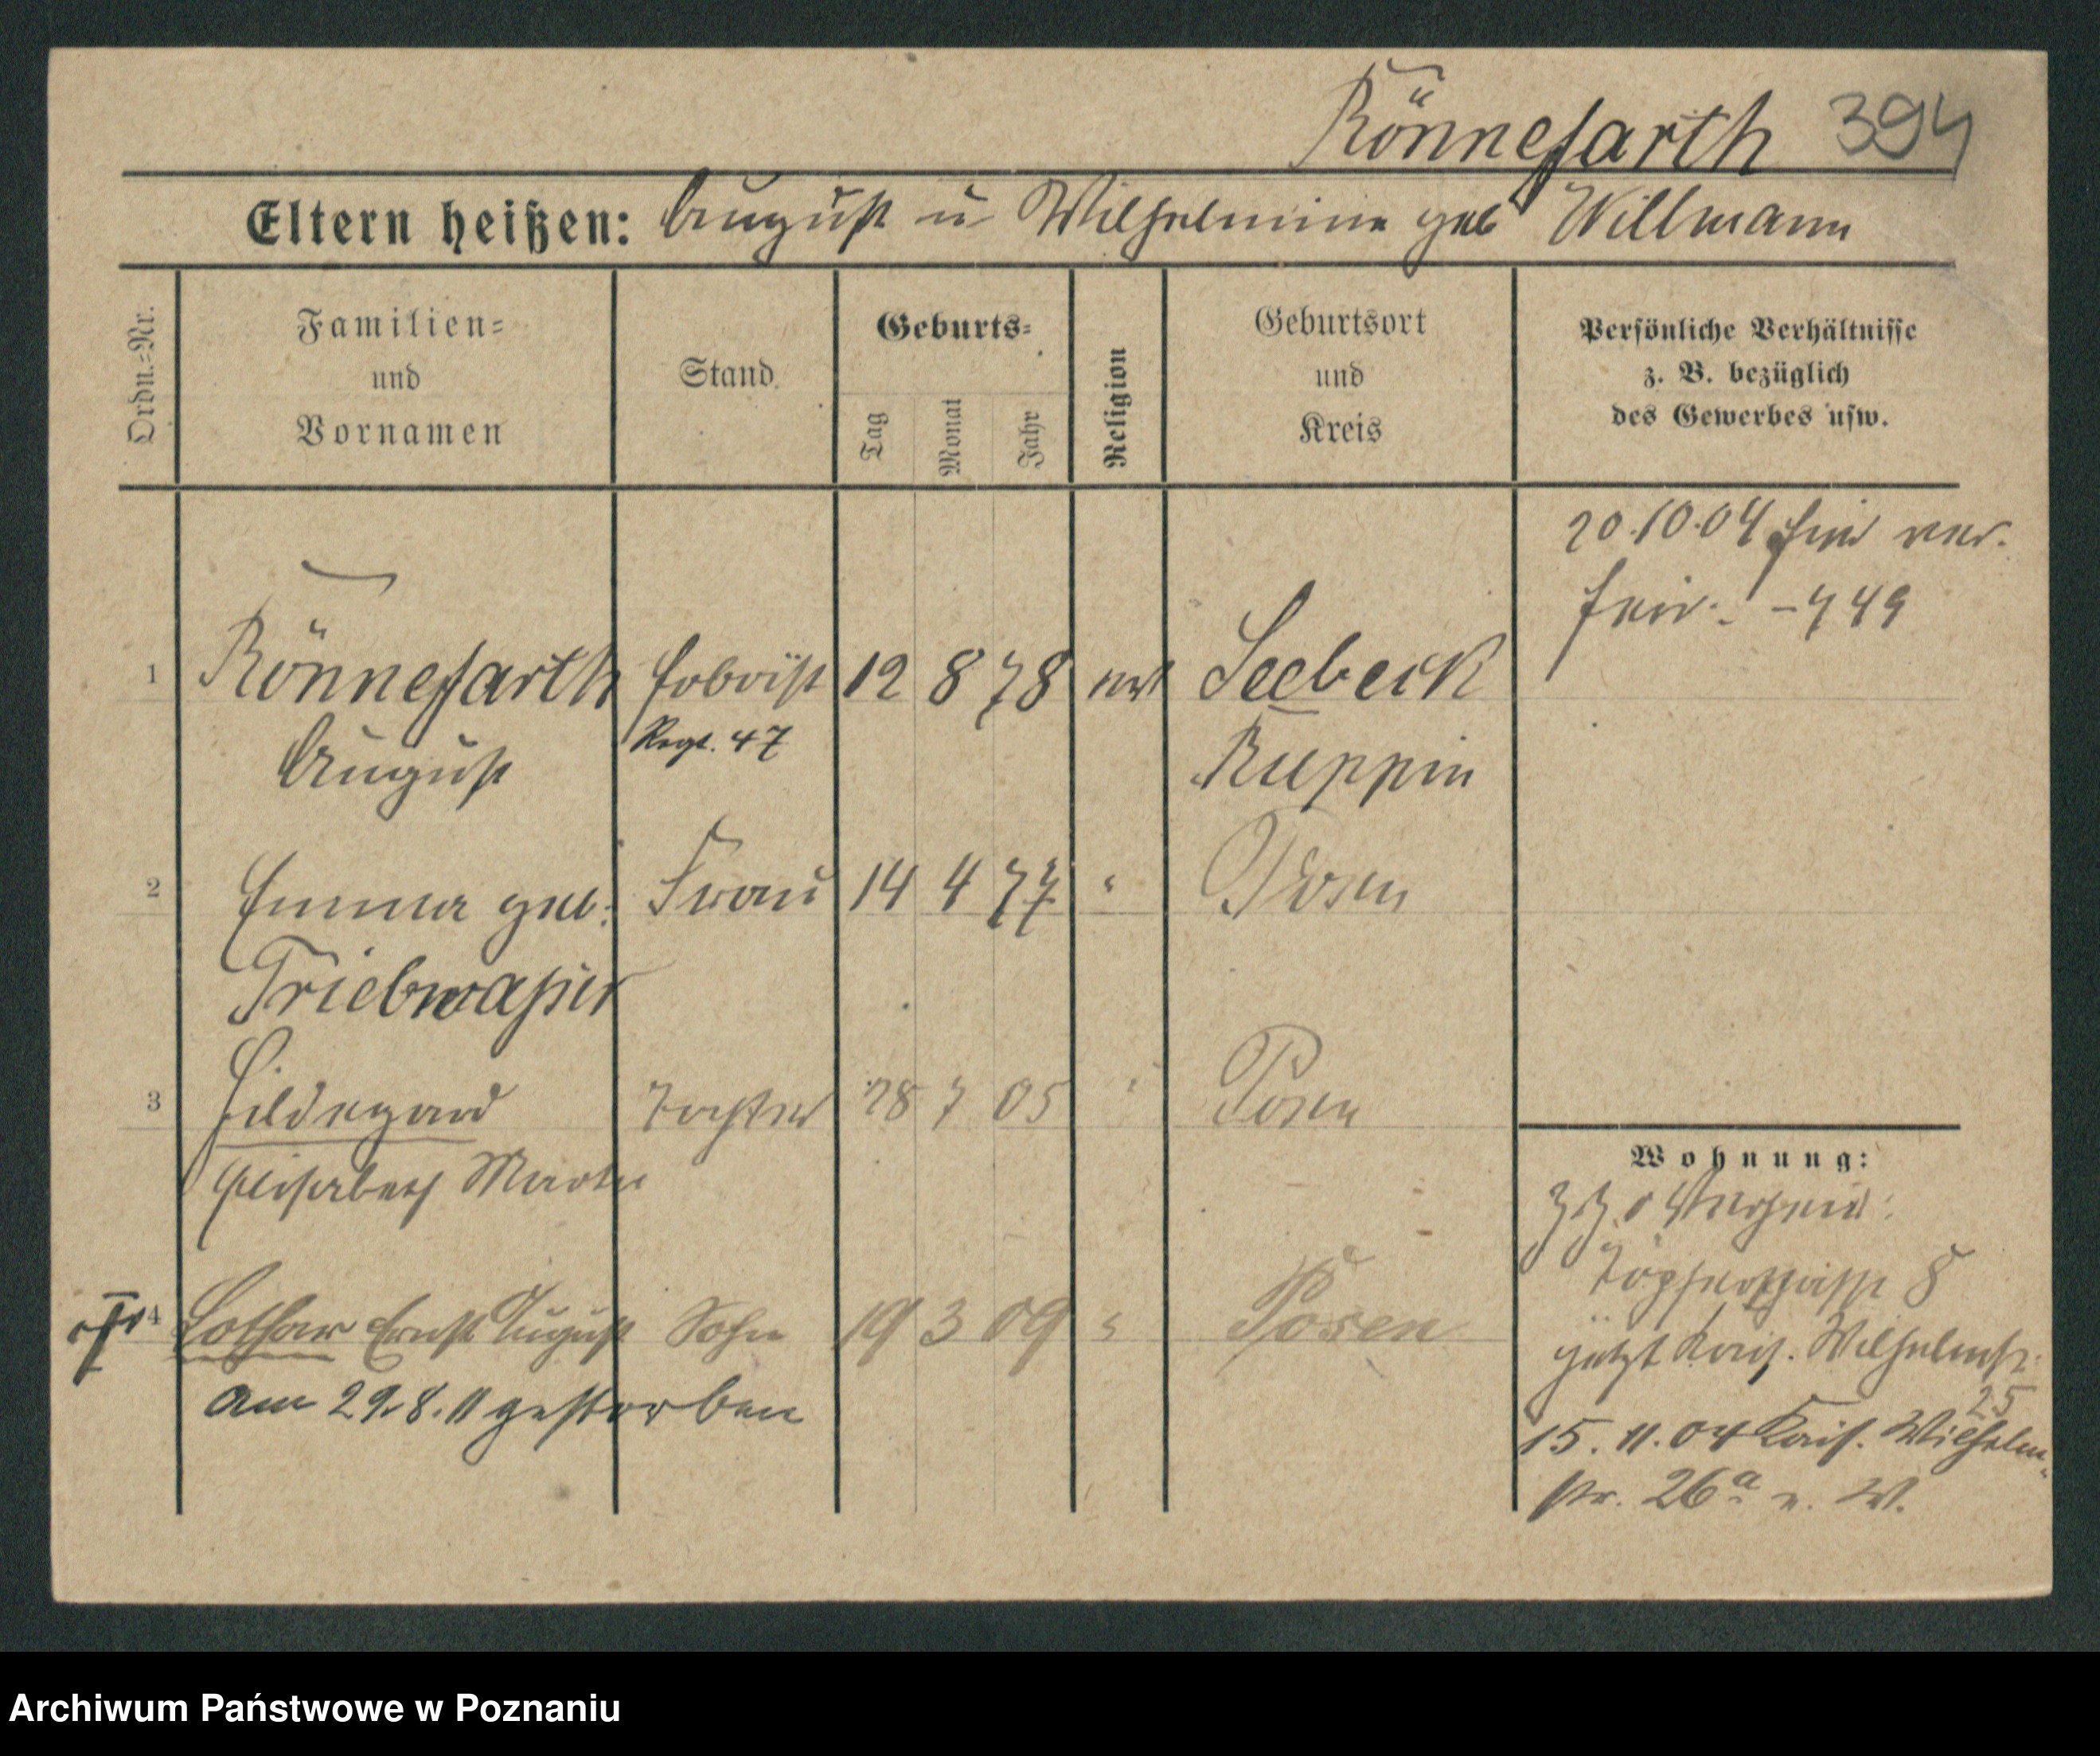 Rönnefarth 394
Eltern heißen: August u Wilhelmine geb Willmann
Ordn.=Nr.
Familien=
und
Vornamen
Stand
Geburts=
Tag
Monat
Jahr
Religion
Geburtsort
und
Kreis
Persönliche Verhältnisse
z. B. bezüglich
des Gewerbes usw.
20.10.04 hier ver.
heir. -449
1 Rönnefarth Hoboist 12 8 78 Seebeck
August Regt. 47 Ruppin
2 Emma geb: Frau 14 4 77 " Posen
Triebwasser
3 Hildegard Tochter 28 7 05 " Posen
Elisabeth Martha
Wohnung:
Töpfergasse 8
4 Lothar Ernst August Sohn 19 3 09 " Posen
jetzt Kais. Wilhelmstr.
25
am 29.8.11 gestorben
15.11.04 Kais. Wilhelm-
str. 26a n. W.
Archiwum Państwowe w Poznaniu